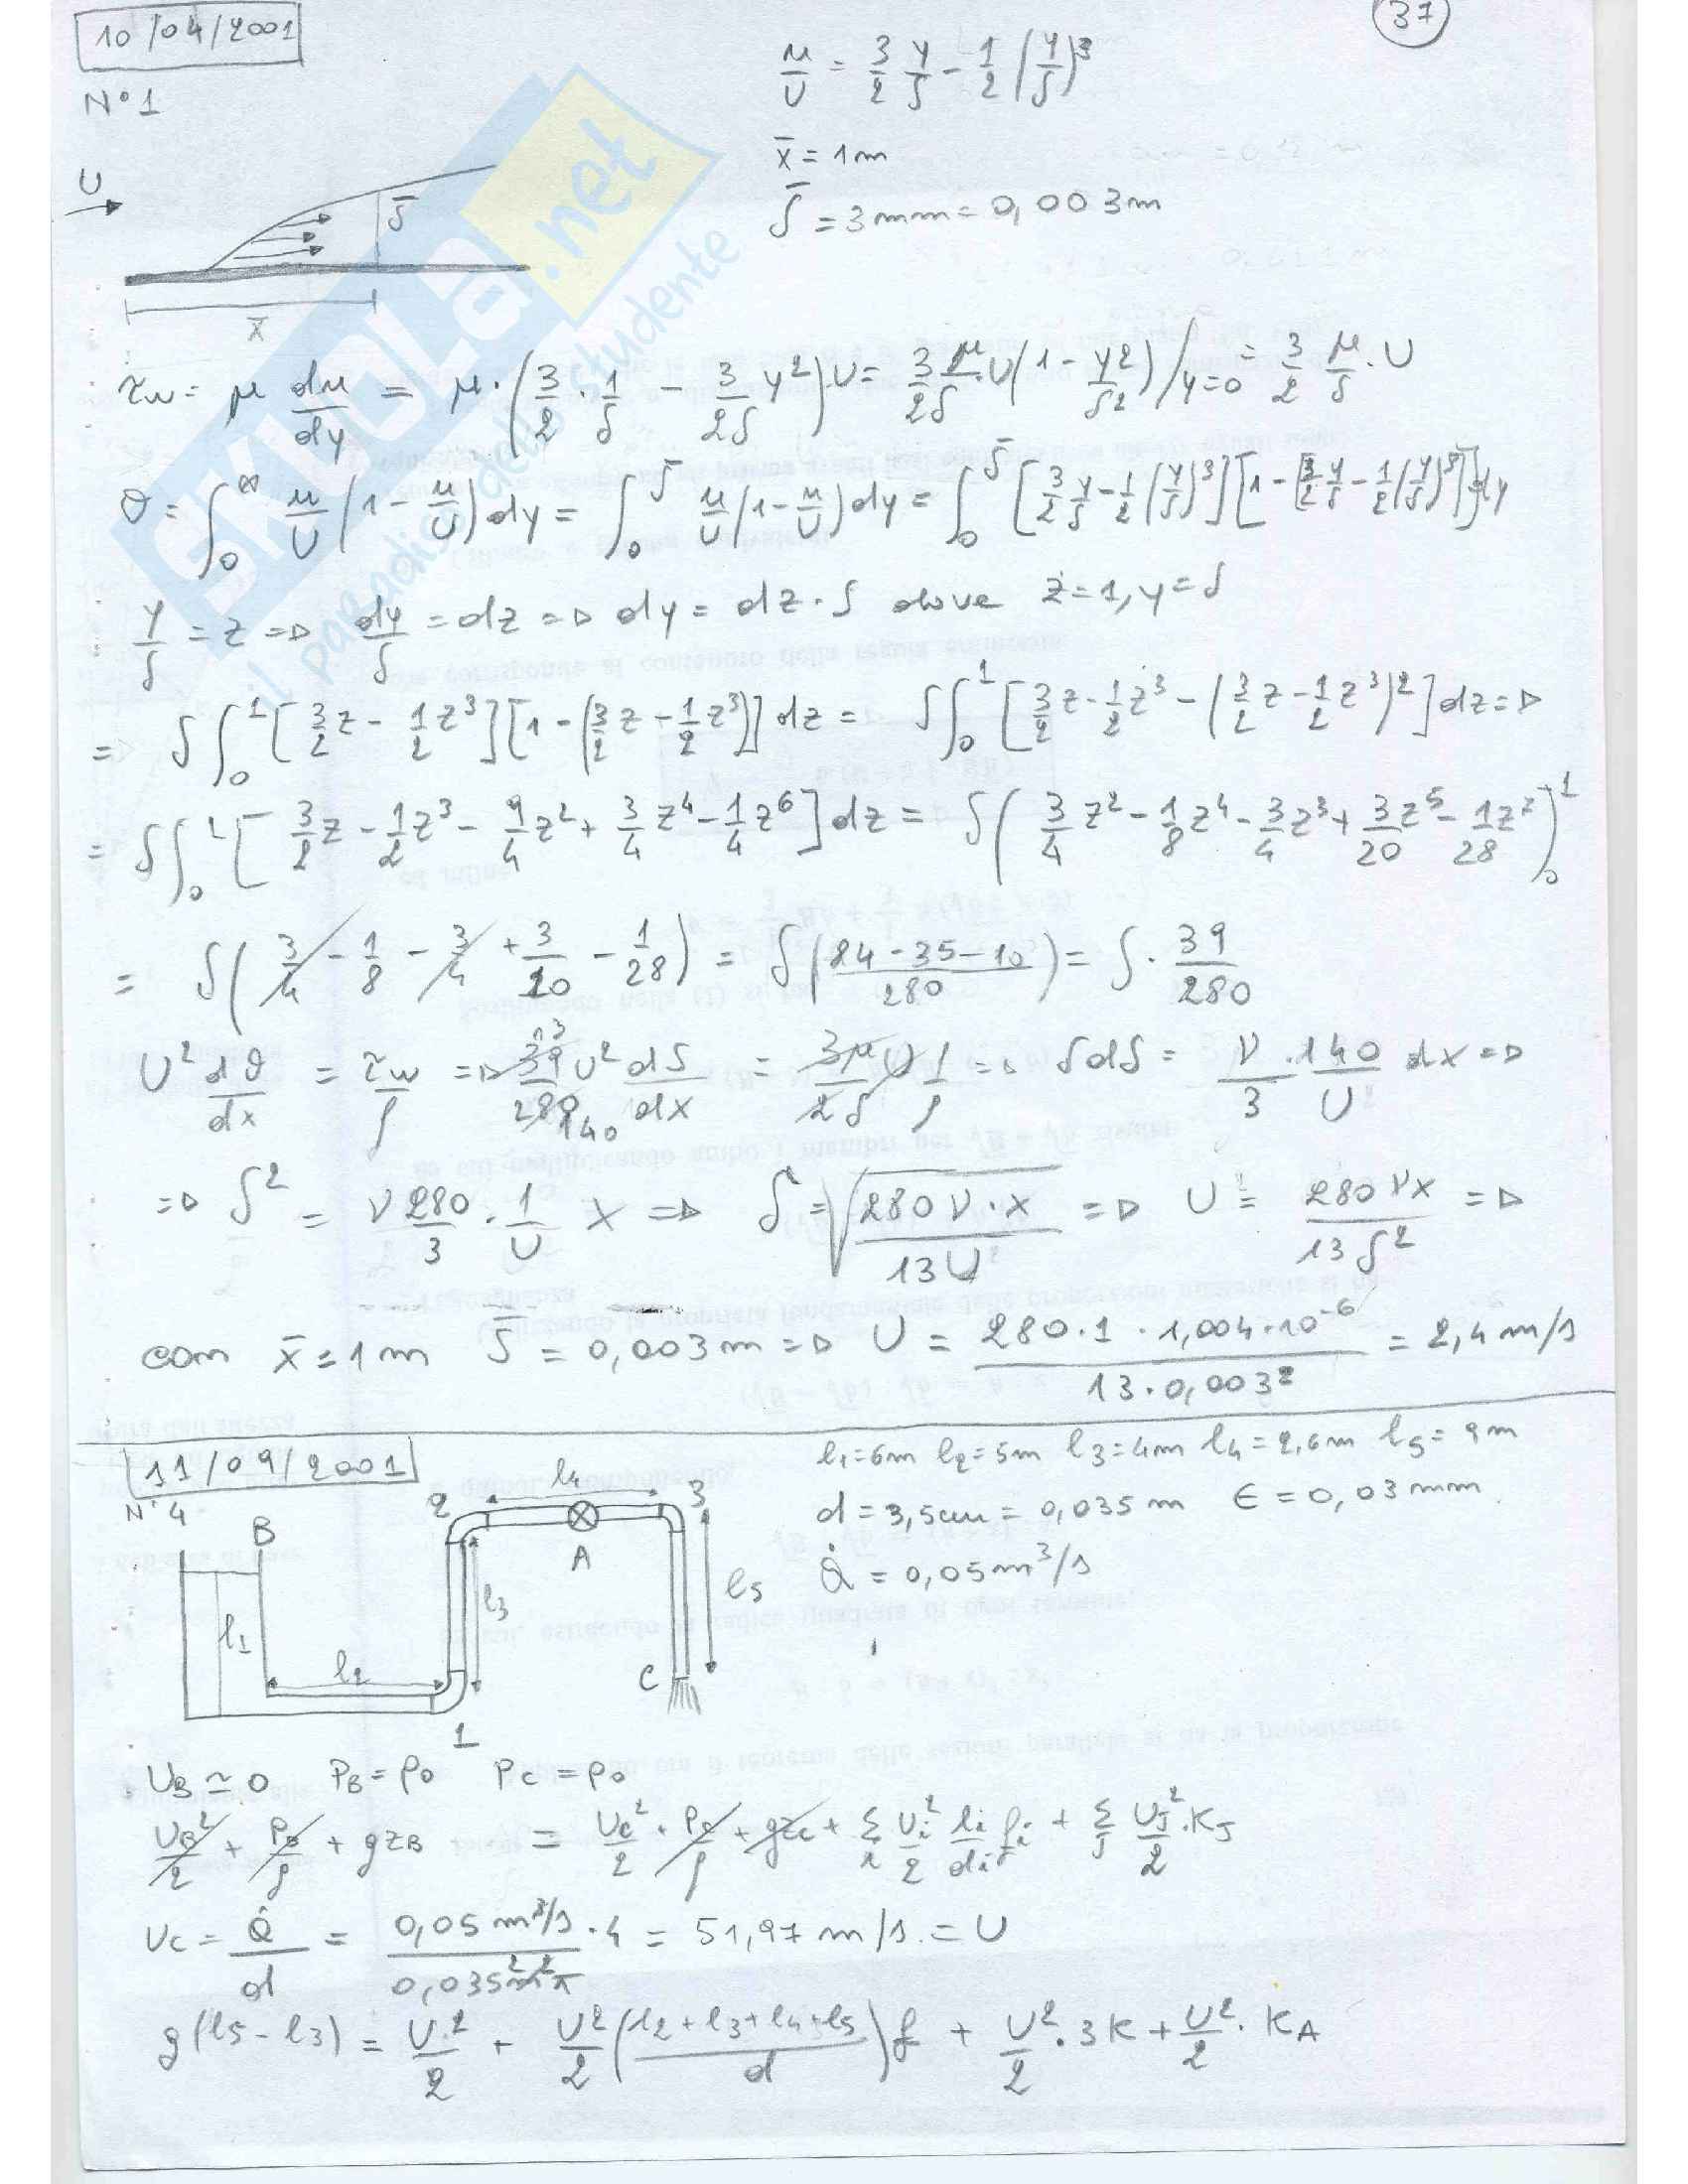 37
10/04/2001
N°1
u/U = 3/2 y/δ - 1/2 (y/δ)^3
x̄ = 1m
δ̄ = 3mm = 0,003m
U
δ̄
x̄
τw = μ du/dy = μ·(3/2 · 1/δ - 3/2δ y²)·U = 3/2 μ/δ · U(1 - y²/δ²)/y=0 = 3/2 μ/δ · U
θ = ∫0^∞ u/U (1 - u/U) dy = ∫0^δ̄ u/U (1 - u/U) dy = ∫0^δ̄ [3/2 y/δ - 1/2 (y/δ)^3][1 - [3/2 y/δ - 1/2 (y/δ)^3]] dy
y/δ = z => dy/δ = dz => dy = dz · δ dove z=1, y=δ
=> δ∫0^1 [3/2 z - 1/2 z^3][1 - (3/2 z - 1/2 z^3)] dz = δ∫0^1 [3/2 z - 1/2 z^3 - (3/2 z - 1/2 z^3)^2] dz =>
= δ∫0^1 [3/2 z - 1/2 z^3 - 9/4 z^2 + 3/4 z^4 - 1/4 z^6] dz = δ(3/4 z^2 - 1/8 z^4 - 3/4 z^3 + 3/20 z^5 - 1/28 z^7)0^1
= δ(3/4 - 1/8 - 3/4 + 3/20 - 1/28) = δ(84-35-10/280) = δ · 39/280
U² dθ/dx = τw/ρ => 39 13/280 140 U² dδ/dx = 3μU/2δ 1/ρ => δdδ = ν/3 · 140/U dx =>
=> δ² = ν 280/3 · 1/U x => δ = √(280 ν · x/13 U) => U = 280 νx/13 δ² =>
con x̄ = 1m δ̄ = 0,003m => U = 280·1·1,004·10^-6/13·0,003² = 2,4 m/s
11/09/2001
N°4
l1=6m l2=5m l3=4m l4=2,6m l5=9m
d = 3,5cm = 0,035m ε = 0,03mm
Q̇ = 0,05m³/s
B
2
l4
3
A
l1
l3
l5
l2
C
1
UB ≃ 0 PB = P0 PC = P0
UB²/2 + PB/ρ + gzB = UC²/2 + PC/ρ + gzC + Σi Ui²/2 li/di fi + Σj Uj²/2 · Kj
UC = Q̇/d = 0,05m³/s/0,035²m²π · 4 = 51,97 m/s = U
g(l5 - l3) = U²/2 + U²/2 (l2+l3+l4+l5/d) f + U²/2 · 3K + U²/2 · KA
SKUOLa.net
il paradiso dello studente